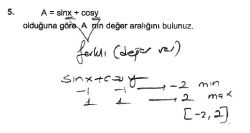 5. A = sinx + cosy
olduğuna göre A nın değer aralığını bulunuz.
farklı (değer var)
sinx + cosy
-1 -1 → -2 min
1 1 → 2 max
[-2, 2]